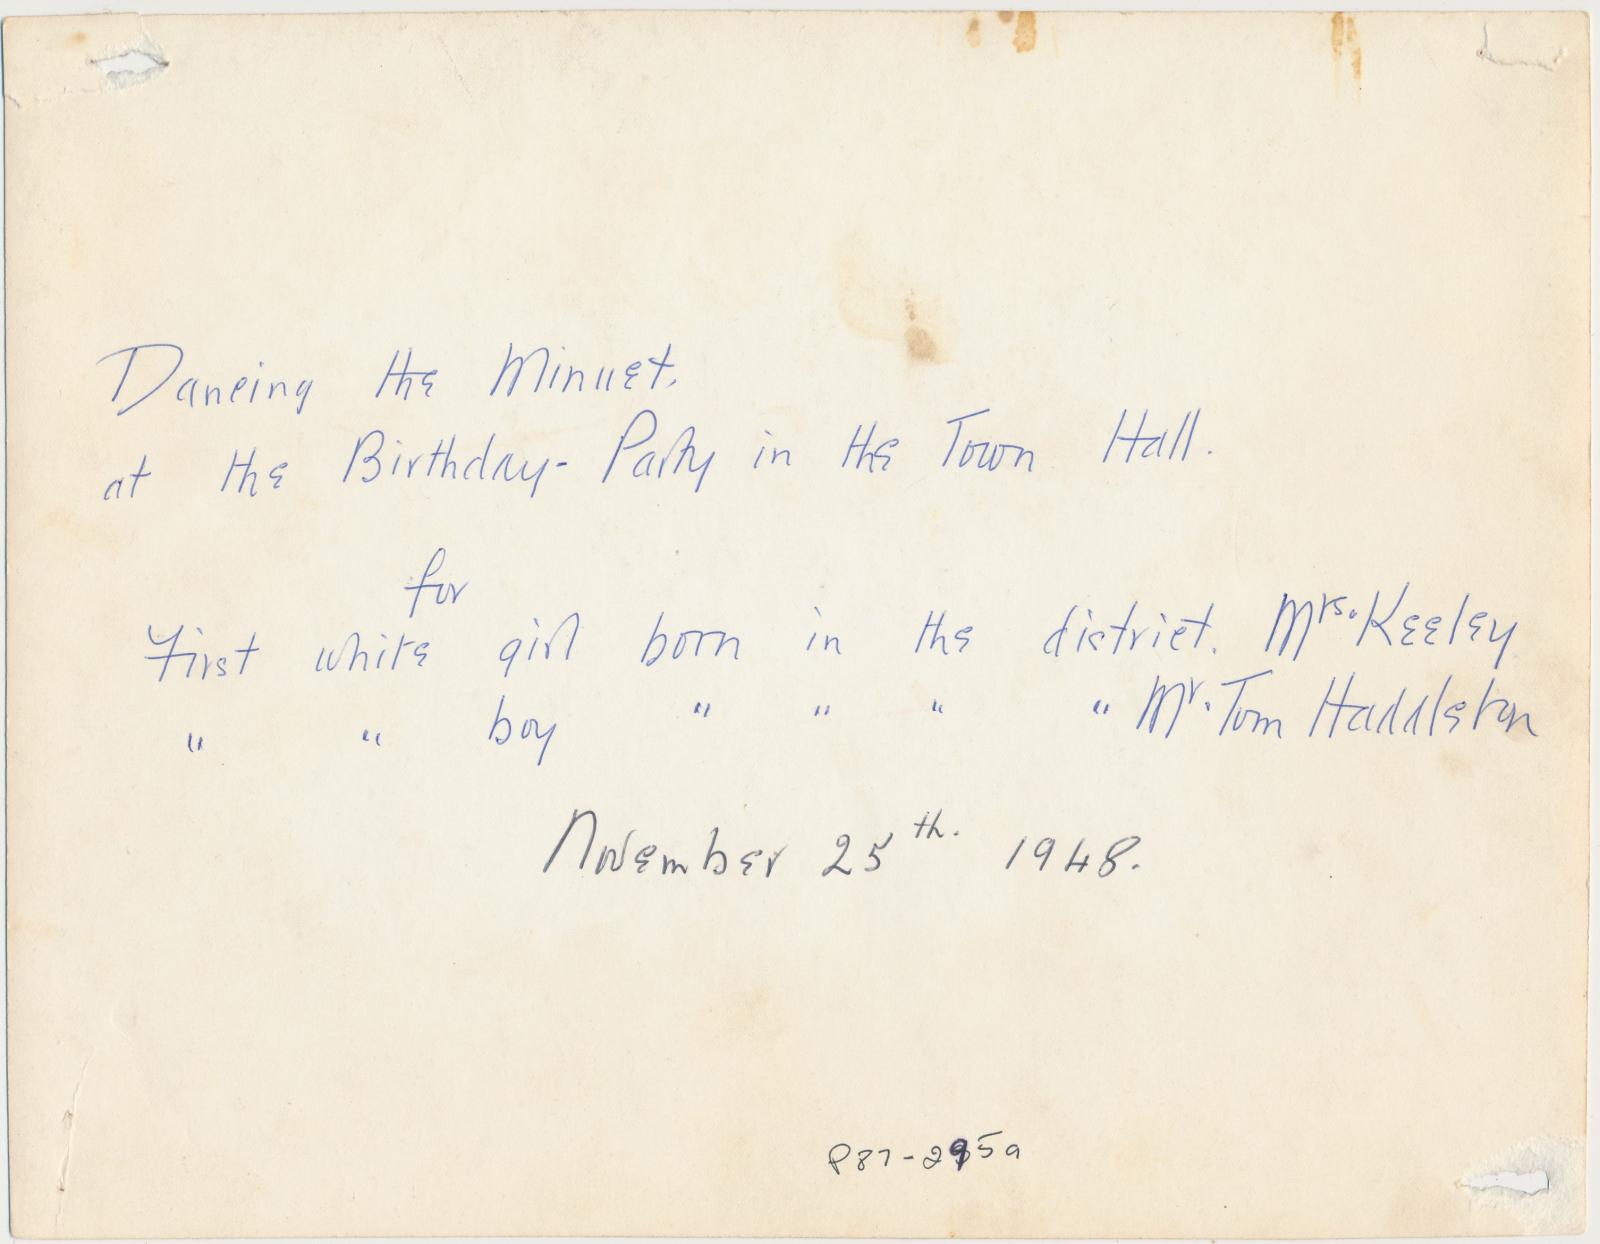 Dancing the Minuet.
at the Birthday-Party in the Town Hall.
for
First white girl born in the district. Mrs. Keeley
" " boy " " " " Mr. Tom Haddleton
November 25th. 1948.
P87-295a